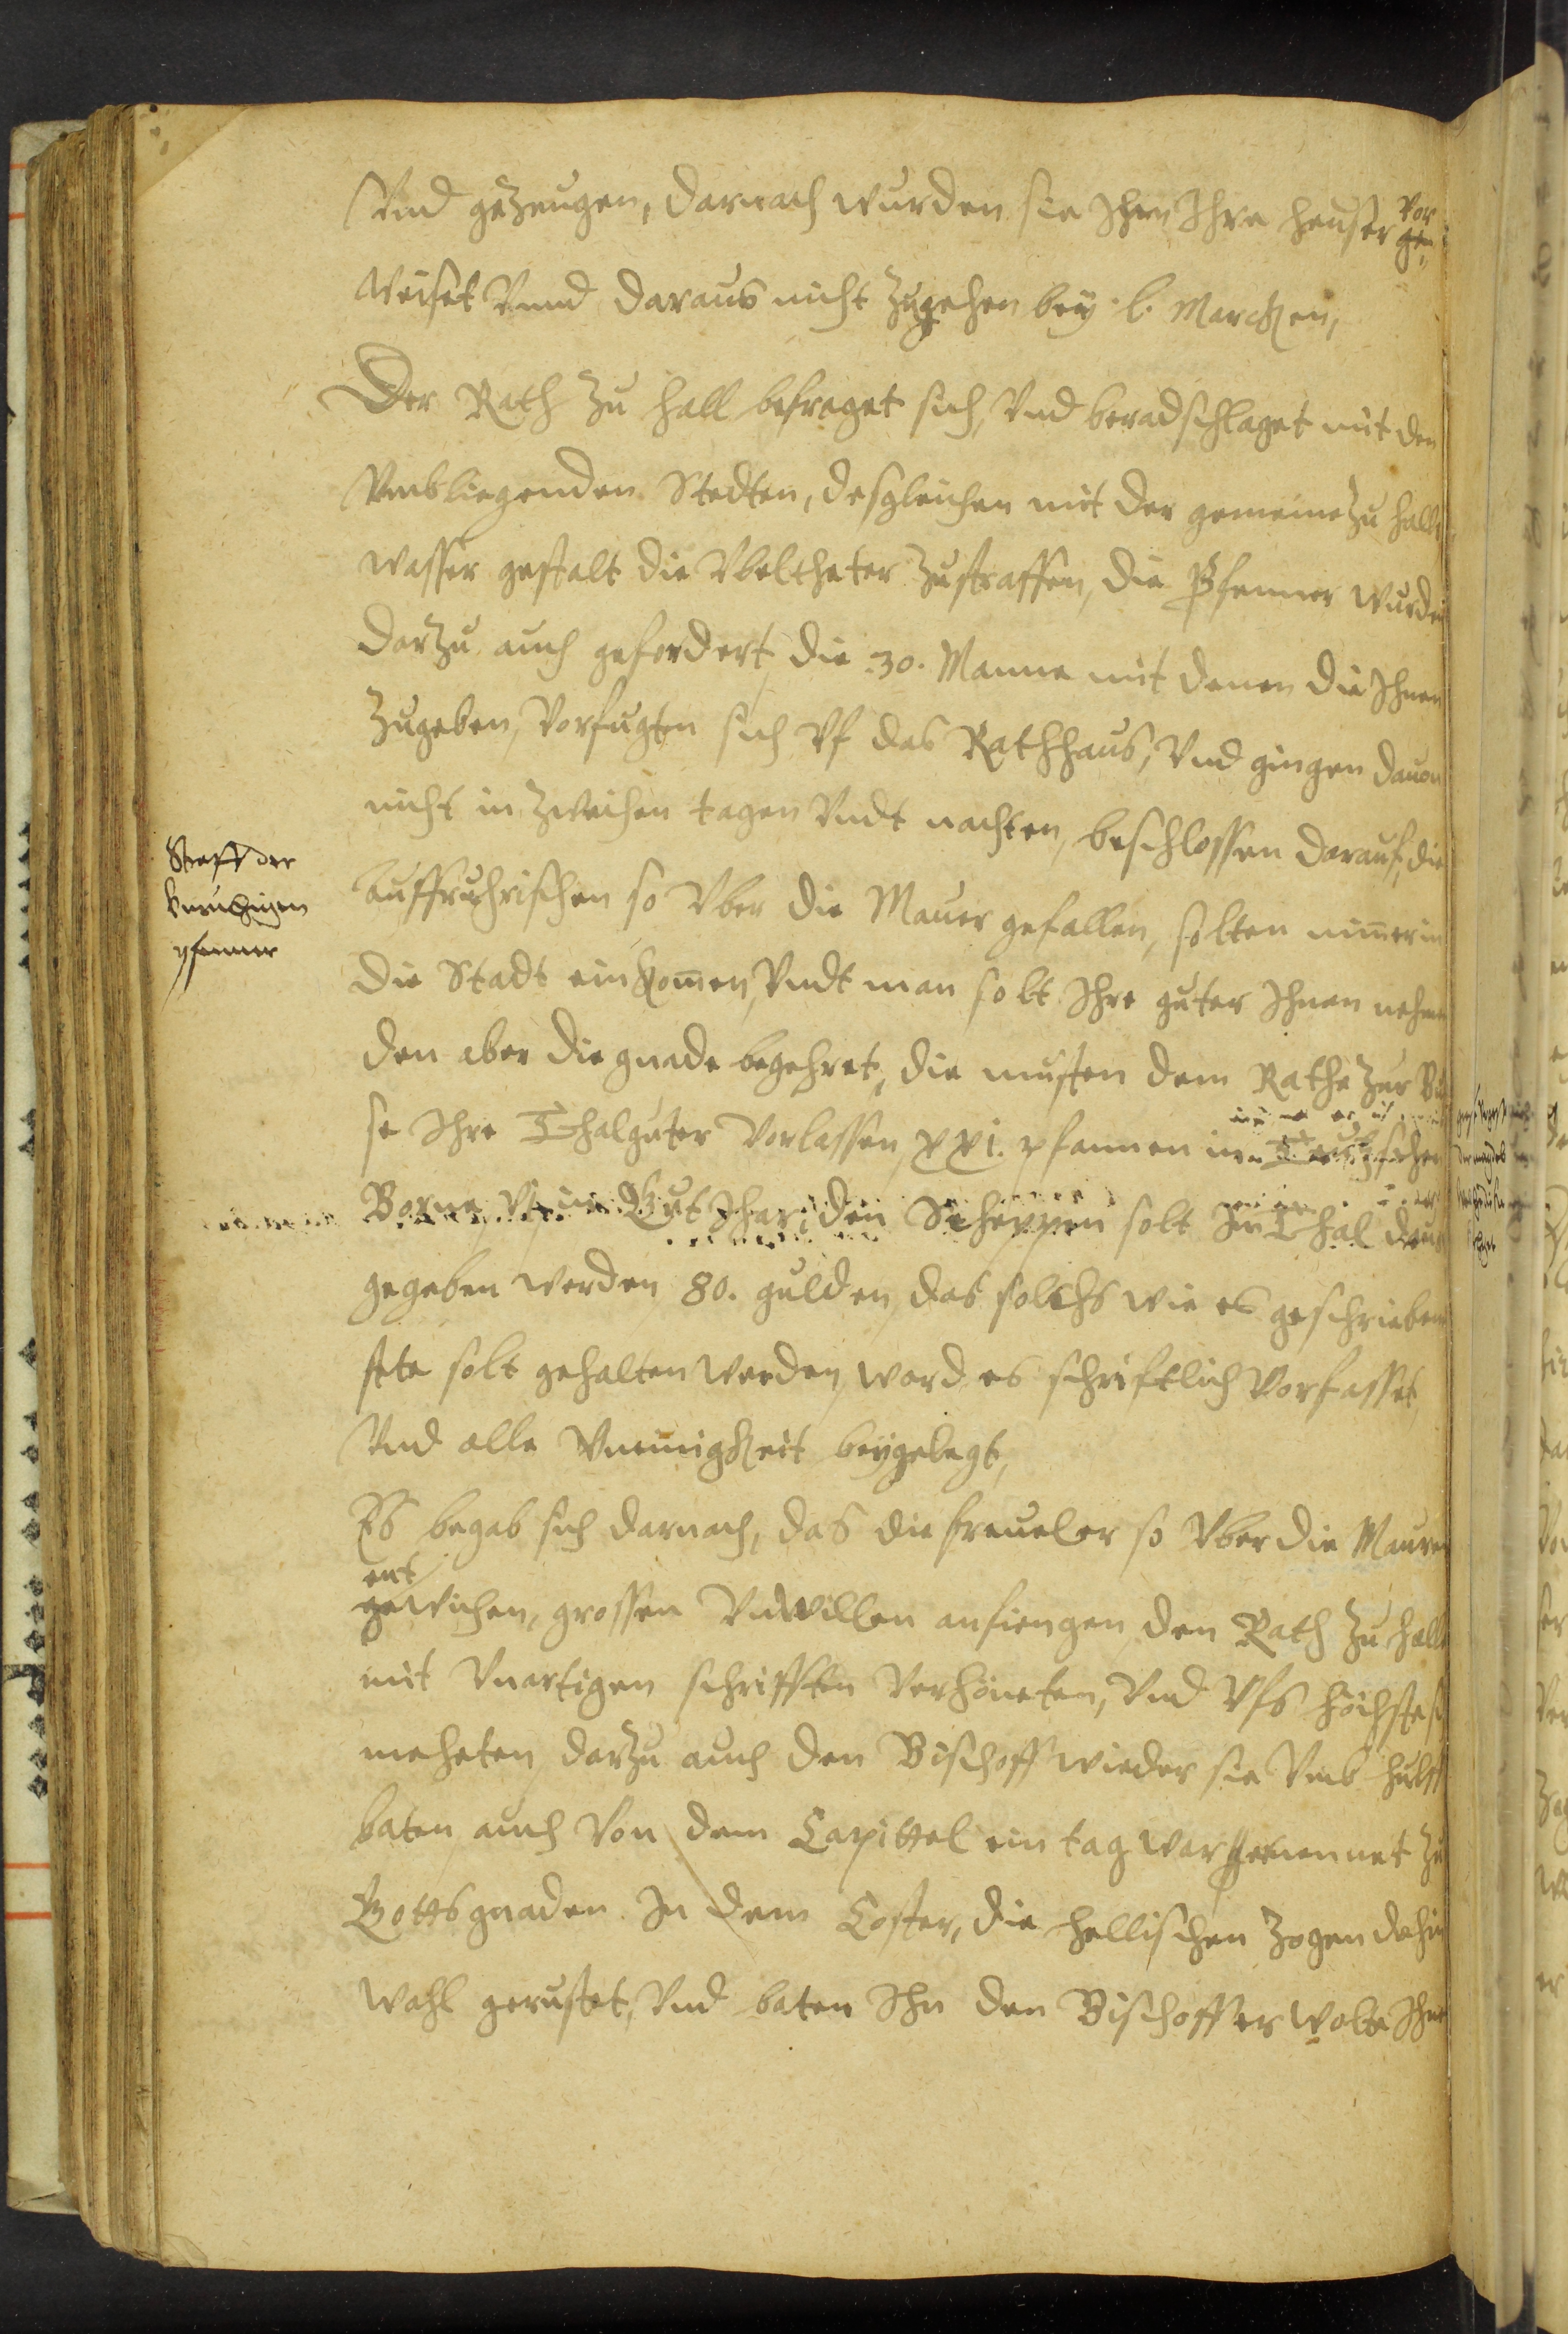 Vnd gezeugen, darnach wurden sie Ihrn Ihre heuser vor
weiset Vnnd daraus nicht zugehen bey l. Marcken,
Der Rath zu Hall befraget sich, Vnd beradschlaget mit den
Vmbliegenden Stedten, desgleichen mit der gemeine zu Hall
wasser gestalt die Vbeltheter zustraffen, die Pfenner wurden
darzu auch gefordert, die 30. Manne mit denen die Ihnen
zugeben, Vorfugten sich Vf das Rathhaus, Vnd gingen dauon
nicht in zweihen tagen Vndt nachten, beschlossen darauf, die
Straff der
Vnruhigen
pfenner
auffruhrischen so Vber die Mauer gefallen, solten nimer in
die Stadt ein komen, Vndt man solt Ihre guter Ihnen nehmen
den aber die gnade begehret, die musten dem Rathe zur Bu
se Ihre Thalguter Vorlassen, XXI. pfannen im Deutzschen
Borne, im Gut Ihar, den Scheppen solt Im Thal
gegeben werden 80. gulden, das solchs wie es geschrieben
stete solt gehalten werden, ward es schriftlich Vorfasset,
Vnd alle Vneinigkeit beygelegt,
Es begab sich darnach, das die freueler so Vber die Mauren
ent
gewichen, grossen Vnwillen anfiengen, den Rath zu Halle
mit Vnartigen schrifften Verhöneten, Vnd Vfs höchste
meheten, darzu auch den Bischoff wieder sie Vmb hulff
baten, auch Von dem Capittel ein tag war genennet zu
Gottsgnaden In dem Closter, die Hellischen zogen dahin
wohl gerustet, Vnd baten Ihn den Bischoff er wolte Ihnen